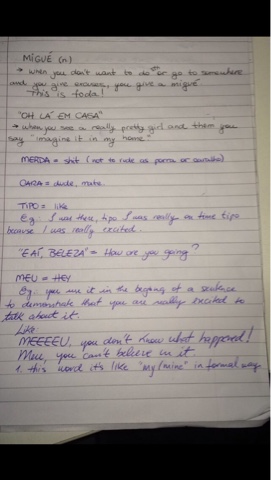 MIGUÉ (n)
→ when you don't want to do or go to somewhere
and you give excuses, you give a migué
This is foda!
"OH LÁ EM CASA"
→ when you see a really pretty girl and them you
say "imagine it in my home"
MERDA = shit (not to rude as porra or caralho)
CARA = dude, mate.
TIPO = like
E.g. I was there, tipo I was really on time tipo
because I was really excited.
"E AÍ, BELEZA" = How are you going?
MEU = HEY
Eg: you use it in the begging of a sentence
to demonstrate that you are really excited to
talk about it.
Like:
MEEEEU, you don't know what happened!
Meu, you can't believe in it.
1. this word it's like "my/mine" in formal way